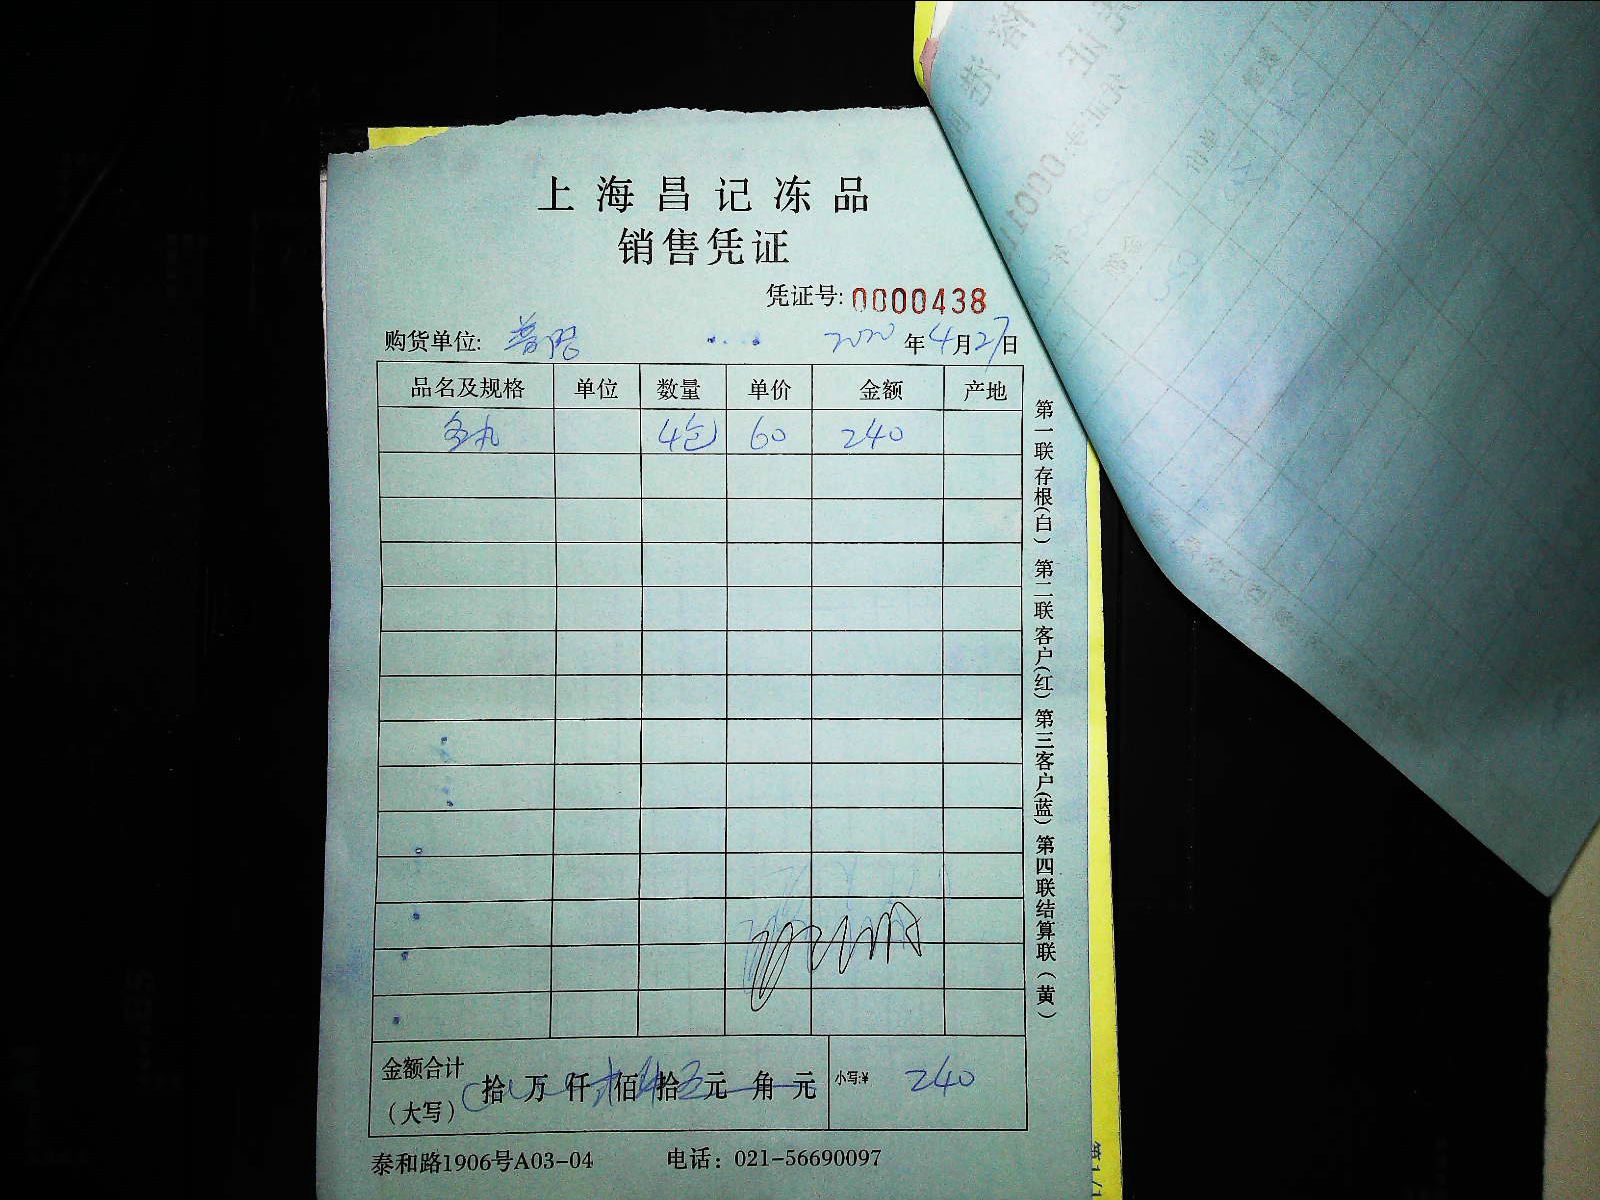 上海昌记冻品
销售凭证
凭证号: 0000438
购货单位: 2020年4月27日
品名及规格 单位 数量 单价 金额 产地
4包 60 240
第一联存根(白) 第二联客户(红) 第三客户(蓝) 第四联结算联(黄)
金额合计(大写) 拾万仟佰拾元角元 小写:¥ 240
泰和路1906号A03-04 电话：021-56690097